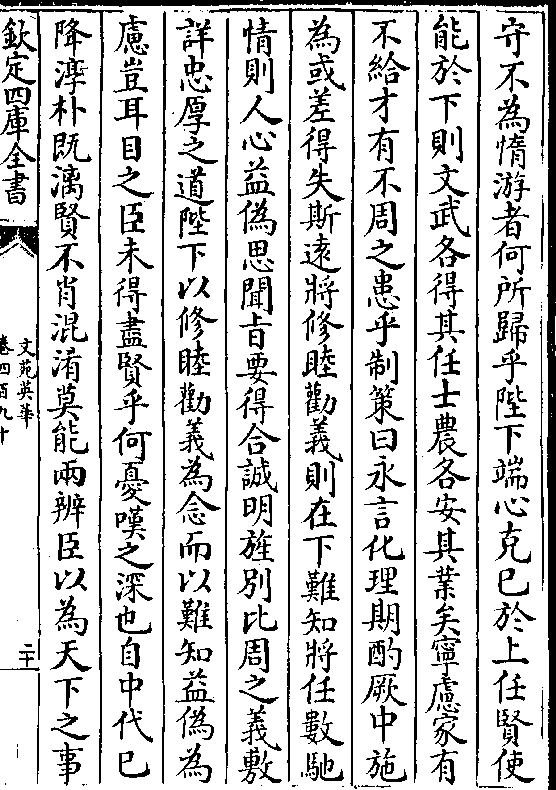 守不為惰游者何所歸乎陛下端心克已於上任賢使
能於下則文武各得其任士農各安其業矣寧慮家有
不給才有不周之患乎制策曰永言化理期酌厥中施
為或差得失斯遠將修睦勸義則在下難知將任數馳
情則人心益偽思聞旨要得合誠明旌別比周之義敷
詳忠厚之道陛下以修睦勸義為念而以難知益偽為
慮豈耳目之臣未得盡賢乎何憂嘆之深也自中代已
降淳朴既漓賢不肖混淆莫能兩辨臣以為天下之事
欽定四庫全書
文苑英華
卷四百九十
二十